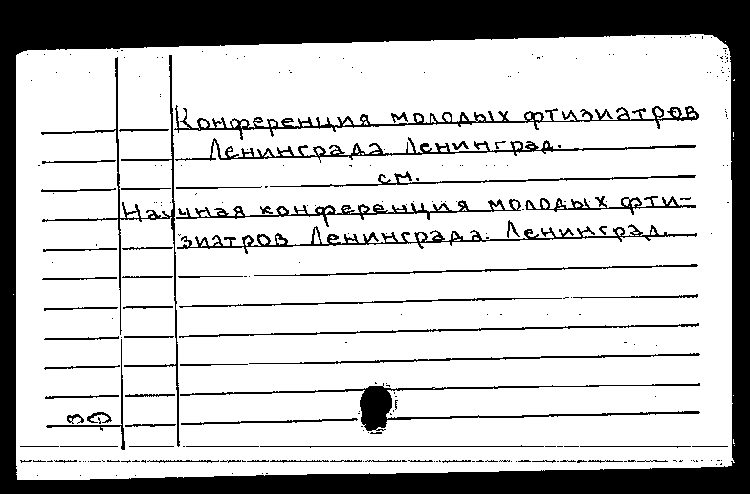 Конференция молодых фтизиатров
Ленинграда Ленинград.
см.
Научная конференция молодых фти-
зиатров Ленинграда. Ленинград.